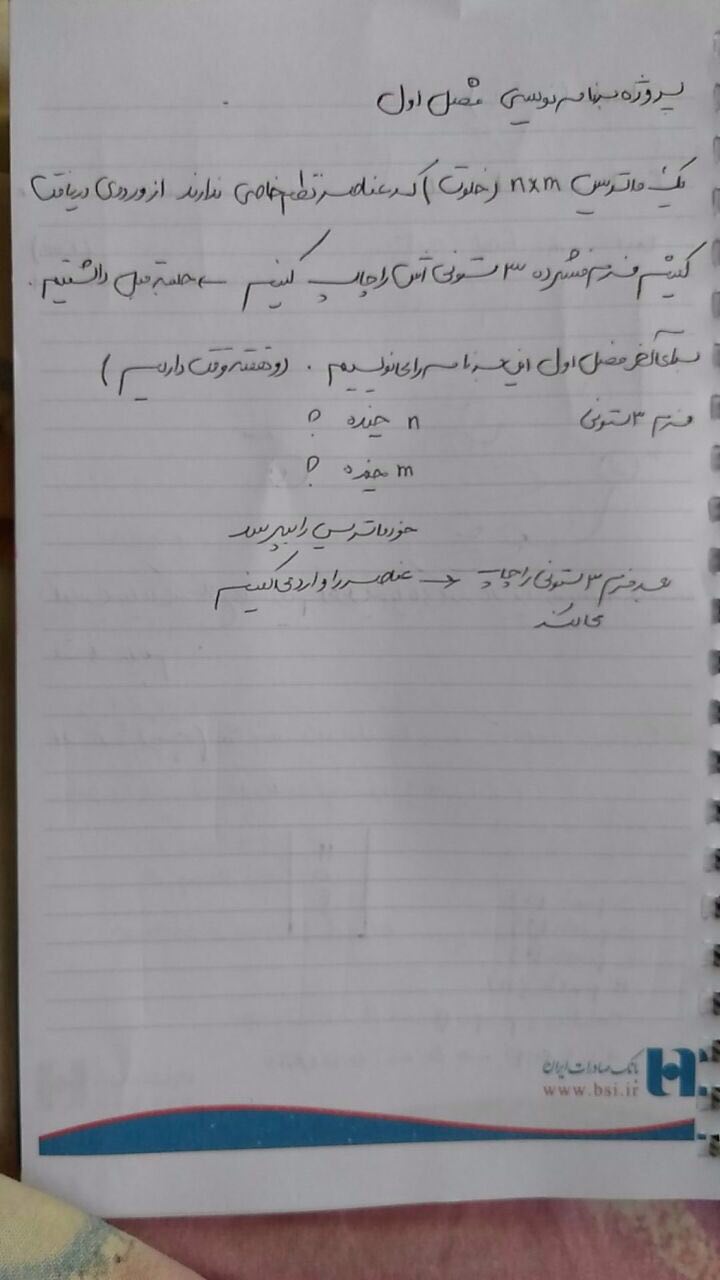 پروژه برنامه نویسی فصل اول
یک ماتریس n×m (خلوت) که عناصر نظم خاصی ندارند از ورودی دریافت
کنیم فرم فشرده ۳ ستونی اش را چاپ کنیم ← جلسه قبل داشتیم.
برای آخر فصل اول این برنامه را می‌نویسیم. (دو هفته وقت داریم)
فرم ۳ ستونی n چنده ؟
m چنده ؟
خود ماتریس را بپرسد
بعد فرم ۳ ستونی را چاپ ← عناصر را وارد می‌کنیم
می‌کند
بانک صادرات ایران
www.bsi.ir